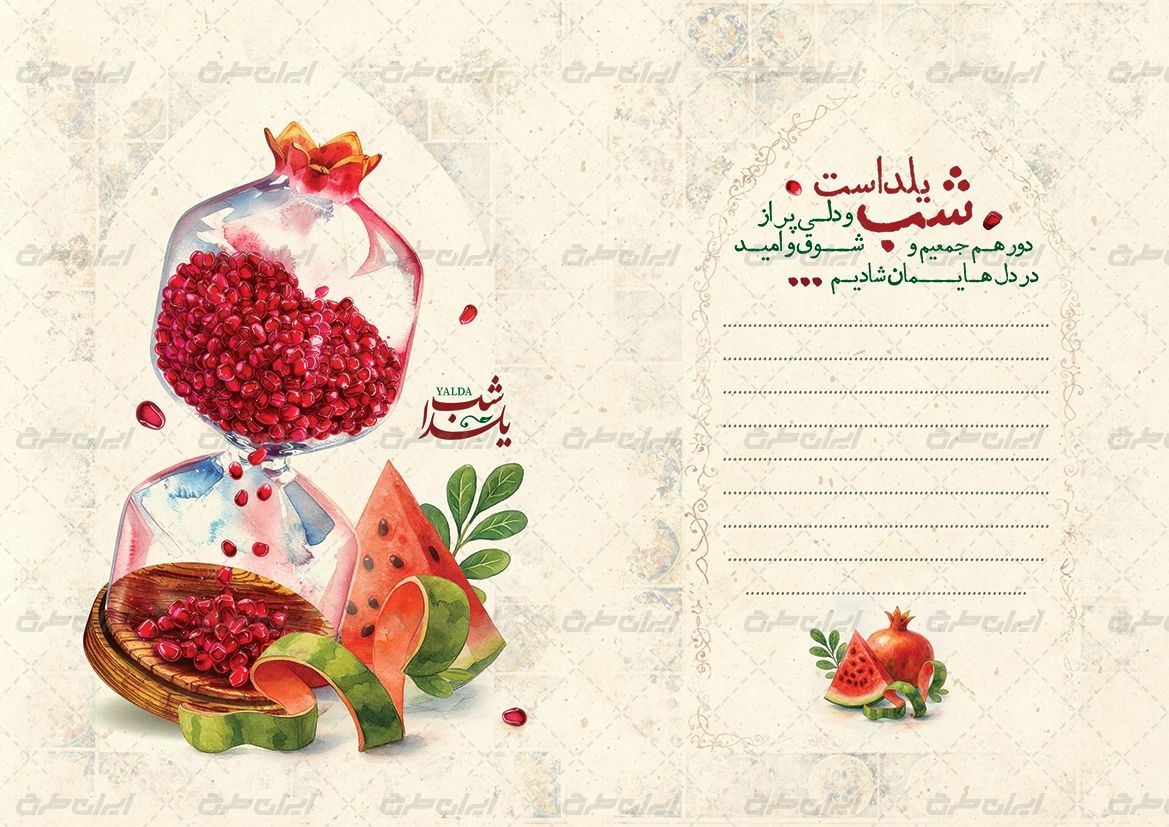 شب یلداست
و دلی پر از
شوق و امید
دور هم جمعیم و
در دل هایمان شادیم ...
YALDA
شب
یلدا
ایران طرح